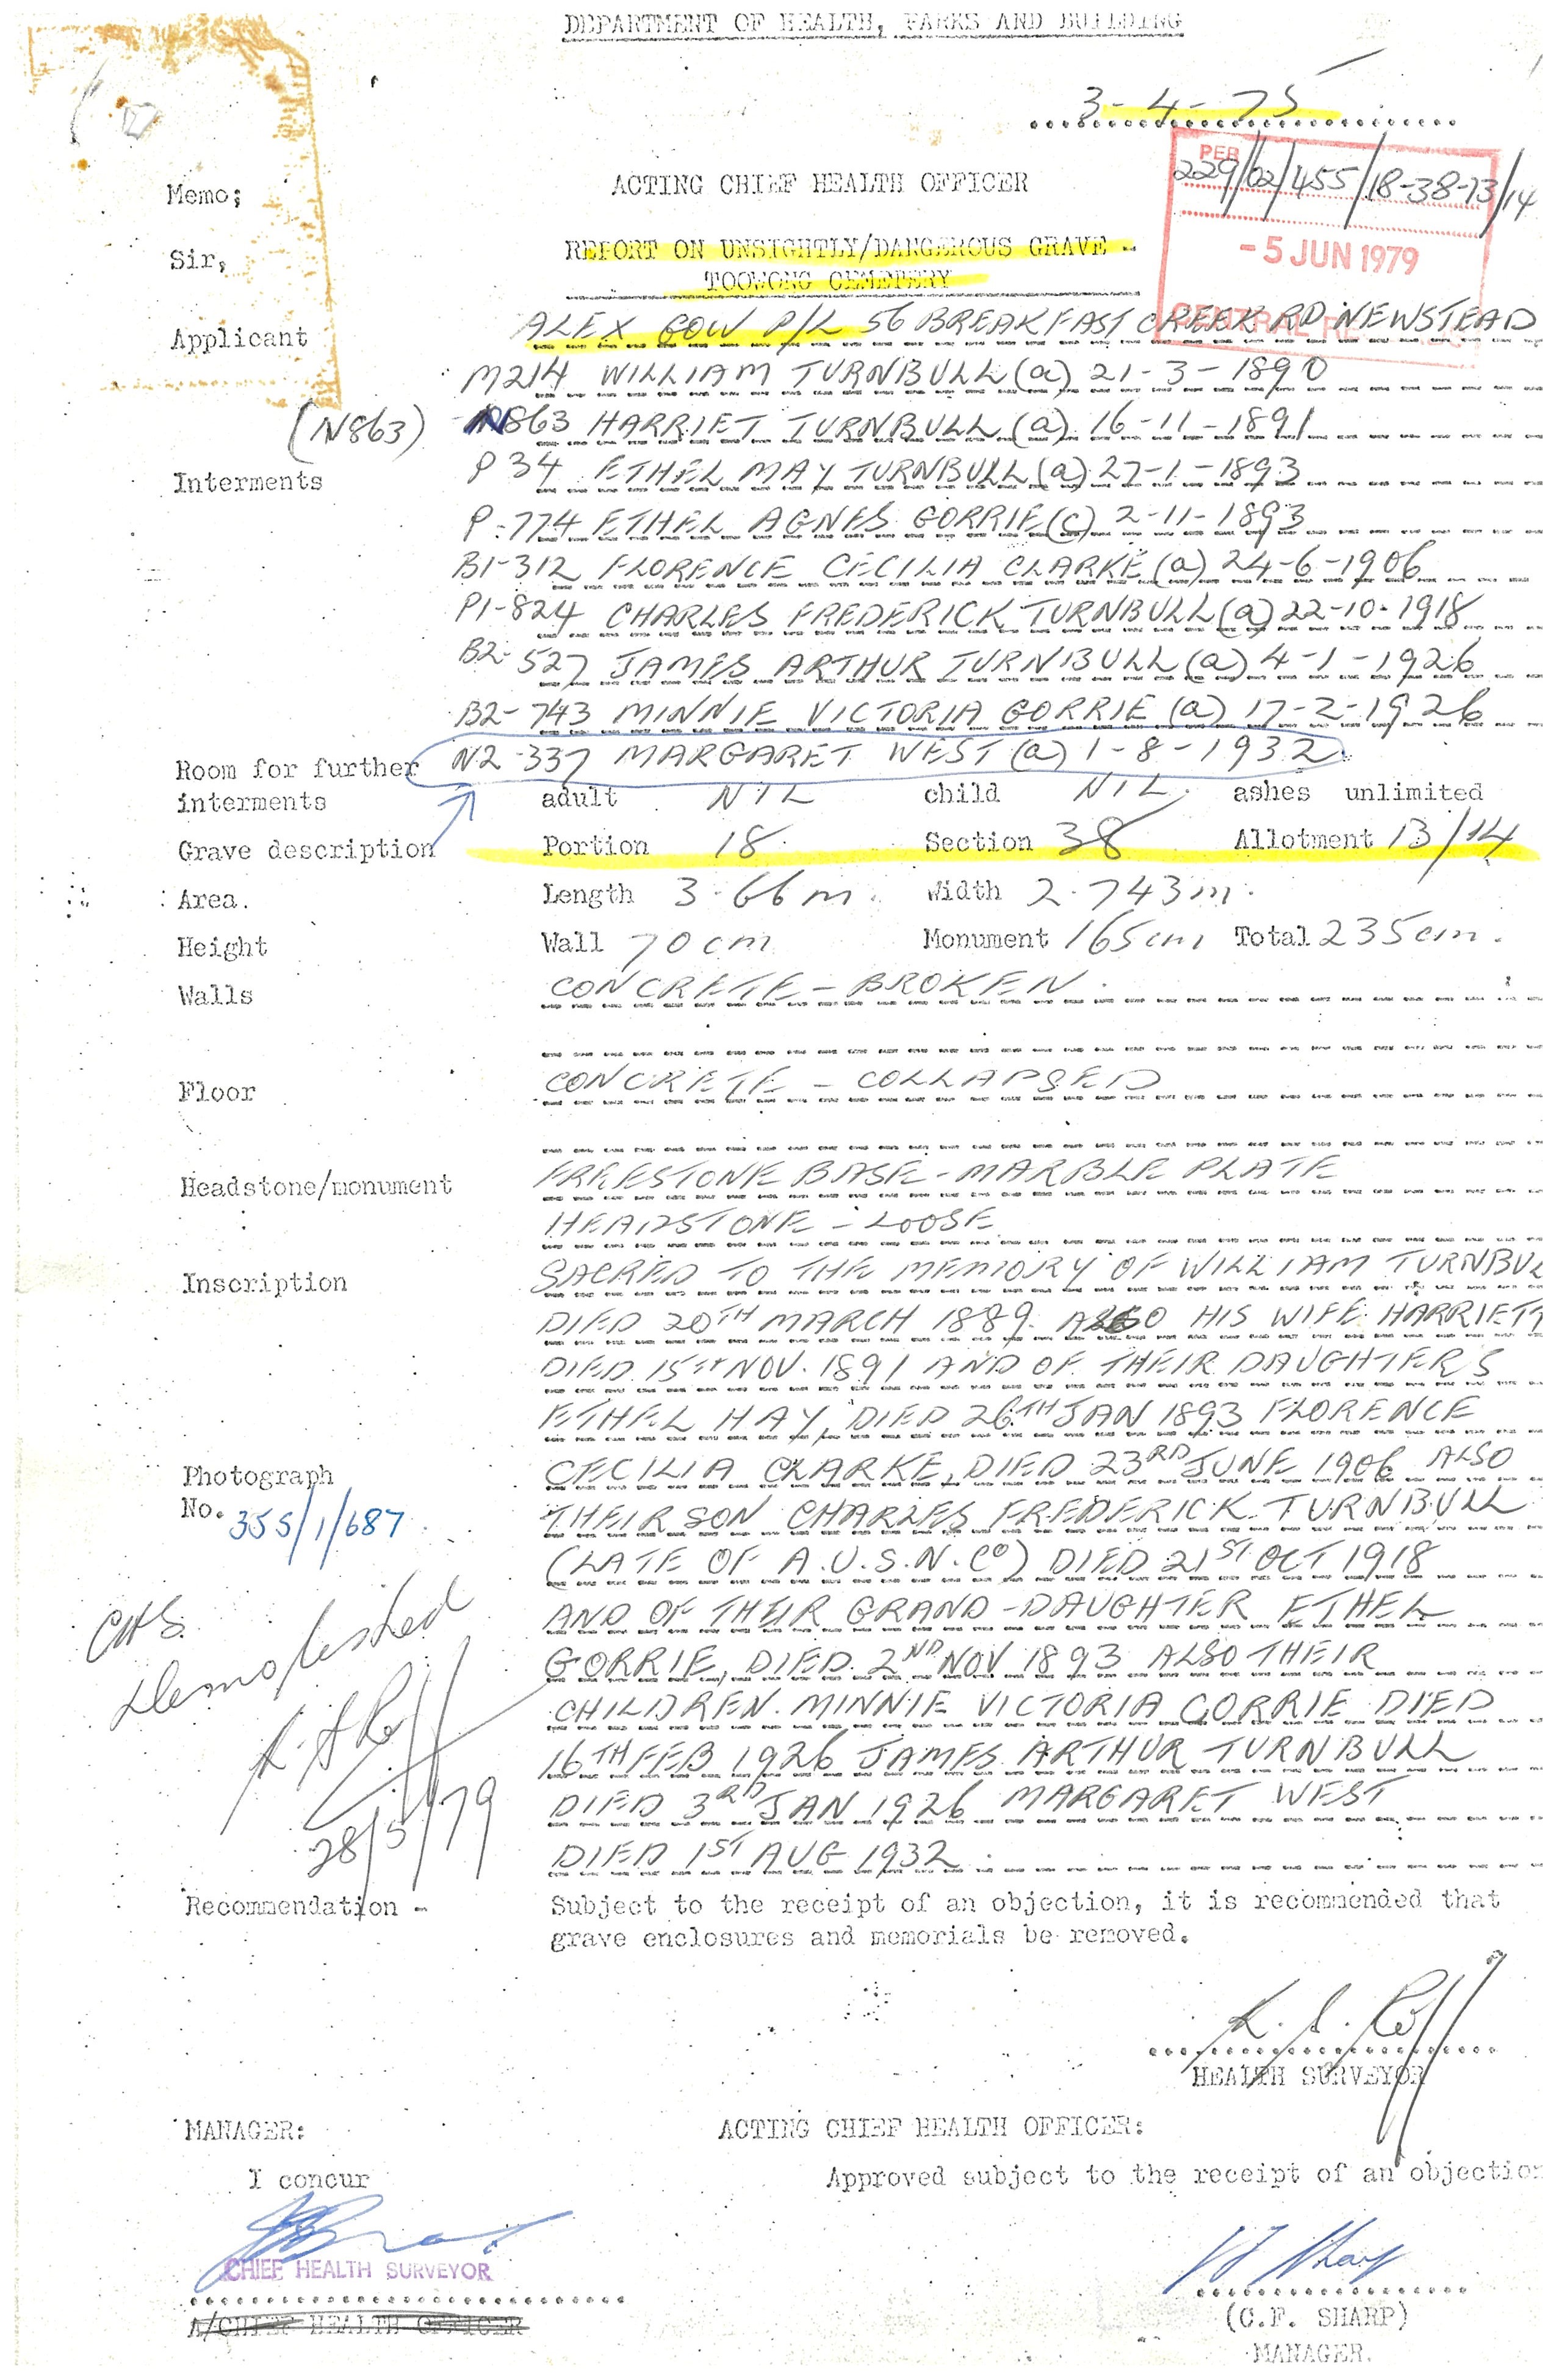 DEPARTMENT OF HEALTH, PARKS AND BUILDING
3-4-75
PER
229/02/455/18-38-13/14
Memo;
ACTING CHIEF HEALTH OFFICER
Sir,
REPORT ON UNSIGHTLY/DANGEROUS GRAVE -
TOOWONG CEMETERY
- 5 JUN 1979
CENTRAL
Applicant ALEX GOW P/L 56 BREAKFAST CREEK RD NEWSTEAD
M214 WILLIAM TURNBULL (a) 21-3-1890
(N863) N863 HARRIET TURNBULL (a) 16-11-1891
Interments P 34 ETHEL MAY TURNBULL (a) 27-1-1893
P.774 ETHEL AGNES GORRIE (c) 2-11-1893
B1-312 FLORENCE CECILIA CLARKE (a) 24-6-1906
P1-824 CHARLES FREDERICK TURNBULL (a) 22-10-1918
B2-527 JAMES ARTHUR TURNBULL (a) 4-1-1926
B2-743 MINNIE VICTORIA GORRIE (a) 17-2-1926
Room for further N2-337 MARGARET WEST (a) 1-8-1932
interments adult NIL child NIL. ashes unlimited
Grave description Portion 18. Section 38 Allotment 13/14
Area. Length 3.66m. Width 2.743m.
Height Wall 70cm Monument 165cm Total 235cm.
Walls CONCRETE - BROKEN.
Floor CONCRETE - COLLAPSED
Headstone/monument FREESTONE BASE - MARBLE PLATE
HEADSTONE - LOOSE
Inscription SACRED TO THE MEMORY OF WILLIAM TURNBUL
DIED 20TH MARCH 1889. ALSO HIS WIFE HARRIETT
DIED 15TH NOV. 1891 AND OF THEIR DAUGHTERS
ETHEL HAY, DIED 26TH JAN 1893 FLORENCE
Photograph CECILIA CLARKE, DIED 23RD JUNE 1906 ALSO
No. 355/1/687 THEIR SON CHARLES FREDERICK TURNBULL
(LATE OF A.U.S.N. Co) DIED 21ST OCT 1918
AND OF THEIR GRAND-DAUGHTER ETHEL
GORRIE, DIED 2ND NOV 1893 ALSO THEIR
CHILDREN. MINNIE VICTORIA GORRIE DIED
16TH FEB 1926 JAMES ARTHUR TURNBULL
DIED 3RD JAN 1926 MARGARET WEST
DIED 1ST AUG 1932.
CHS
Demolished
28/5/79
Recommendation - Subject to the receipt of an objection, it is recommended that
grave enclosures and memorials be removed.
HEALTH SURVEYOR
MANAGER: ACTING CHIEF HEALTH OFFICER:
I concur Approved subject to the receipt of an objection
CHIEF HEALTH SURVEYOR
A/CHIEF HEALTH OFFICER
(C.F. SHARP)
MANAGER.